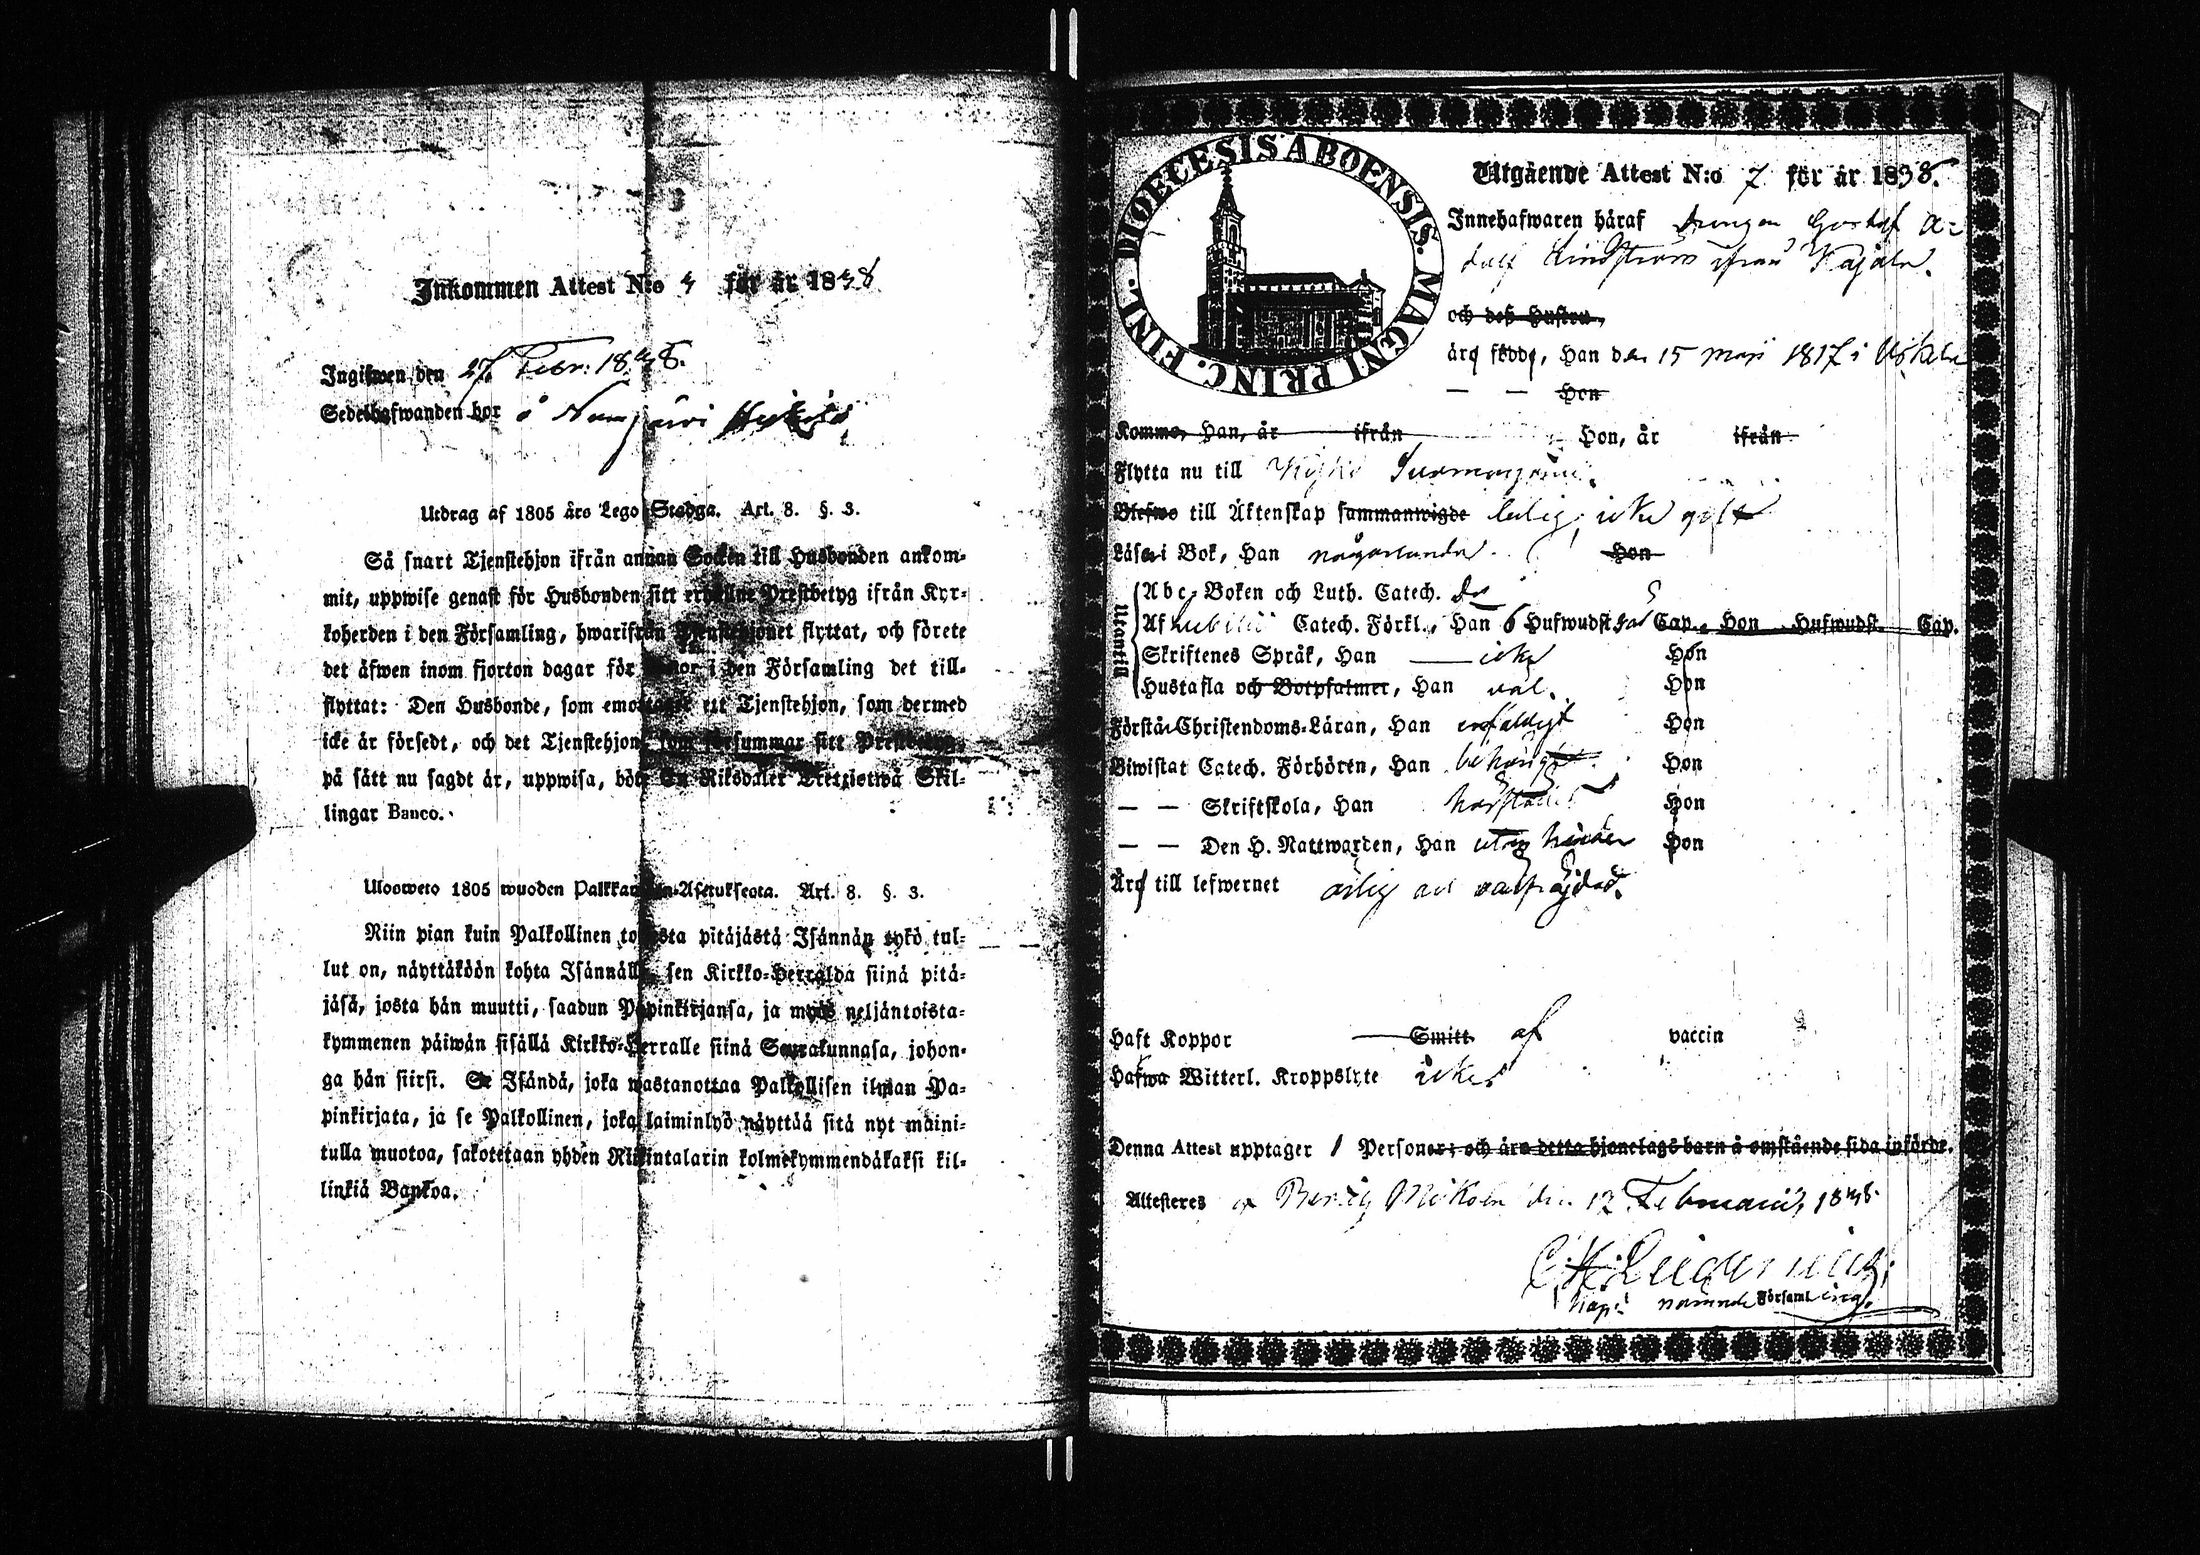 Inkommen Attest N:o 4 för år 1838
Ingifwen den 27 Febr. 1838.
Sedelhafwanden bor å
Utdrag af 1805 års Lego Stadga. Art. 8. §. 3.
Så snart Tjenstehjon ifrån annan Socken till Husbonden ankom-
mit, uppwise genast för Husbonden sitt erhållne Prestbetyg ifrån Kyr-
koherden i den Församling, hwarifrån Tjenstehjonet flyttat, och förete
det äfwen inom fjorton dagar för i den Församling det till-
flyttat: Den Husbonde, som emottager ett Tjenstehjon, som dermed
icke är försedt, och det Tjenstehjon, som försummar sitt Prestbetyg,
på sätt nu sagdt är, uppwisa, böte En Riksdaler Tretziotwå Skil-
lingar Banco.
Ulosweto 1805 wuoden Palkkaustan-Asetuksesta. Art. 8. §. 3.
Niin pian kuin Palkollinen toisesta pitäjästä Isännän tykö tul-
lut on, näyttäköön kohta Isännälle, sen Kirkko-Herralda siinä pitä-
jäsä, josta hän muutti, saadun Papinkirjansa, ja myös neljäntoista-
kymmenen päiwän sisällä Kirkko-Herralle siinä Seurakunnasa, johon-
ga hän siirsi. Se Isändä, joka wastanottaa Palkollisen ilman Pa-
pinkirjata, ja se Palkollinen, joka laiminlyö näyttää sitä nyt maini-
tulla muotoa, sakotetaan yhden Riikintalarin kolmekymmendäkaksi kil-
linkiä Bankoa.
DIOECESIS ABOENSIS. MAGNI PRINC. FINL.
Utgående Attest N:o 7 för år 1838.
Innehafwaren häraf Drengen Gustaf A=
dolf Lindström ifrån Kajala.
och deß Hustru,
äro födde, Han den 15 Maji 1817 i Uskela
— — Hon
Komme, Han, år ifrån Hon, år ifrån
Flytta nu till
Blefwo till Äktenskap sammanwigde ledig, icke gift
Läsa i Bok, Han någorlunda. Hon
Utantill
Abc-Boken och Luth. Catech. Do
Af Catech. Förkl., Han 6 Hufwudst Cap. Hon Hufwudst. Cap.
Skriftenes Språk, Han — icke Hon
Hustafla och Botpsalmer, Han väl. Hon
Förstå Christendoms-Läran, Han enfaldigt Hon
Biwistat Catech. Förhören, Han behörigt Hon
— — Skriftskola, Han härstädes Hon
— — Den H. Nattwarden, Han utan hinder Hon
Äro till lefwernet ärlig och välfräjdad.
Haft Koppor — Smitt af vaccin
Hafwa Witterl. Kroppslyte icke
Denna Attest upptager 1 Personer; och äro detta hjonelags barn å omstående sida införde.
Attesteres af den 12 Februarii 1838
Församling.